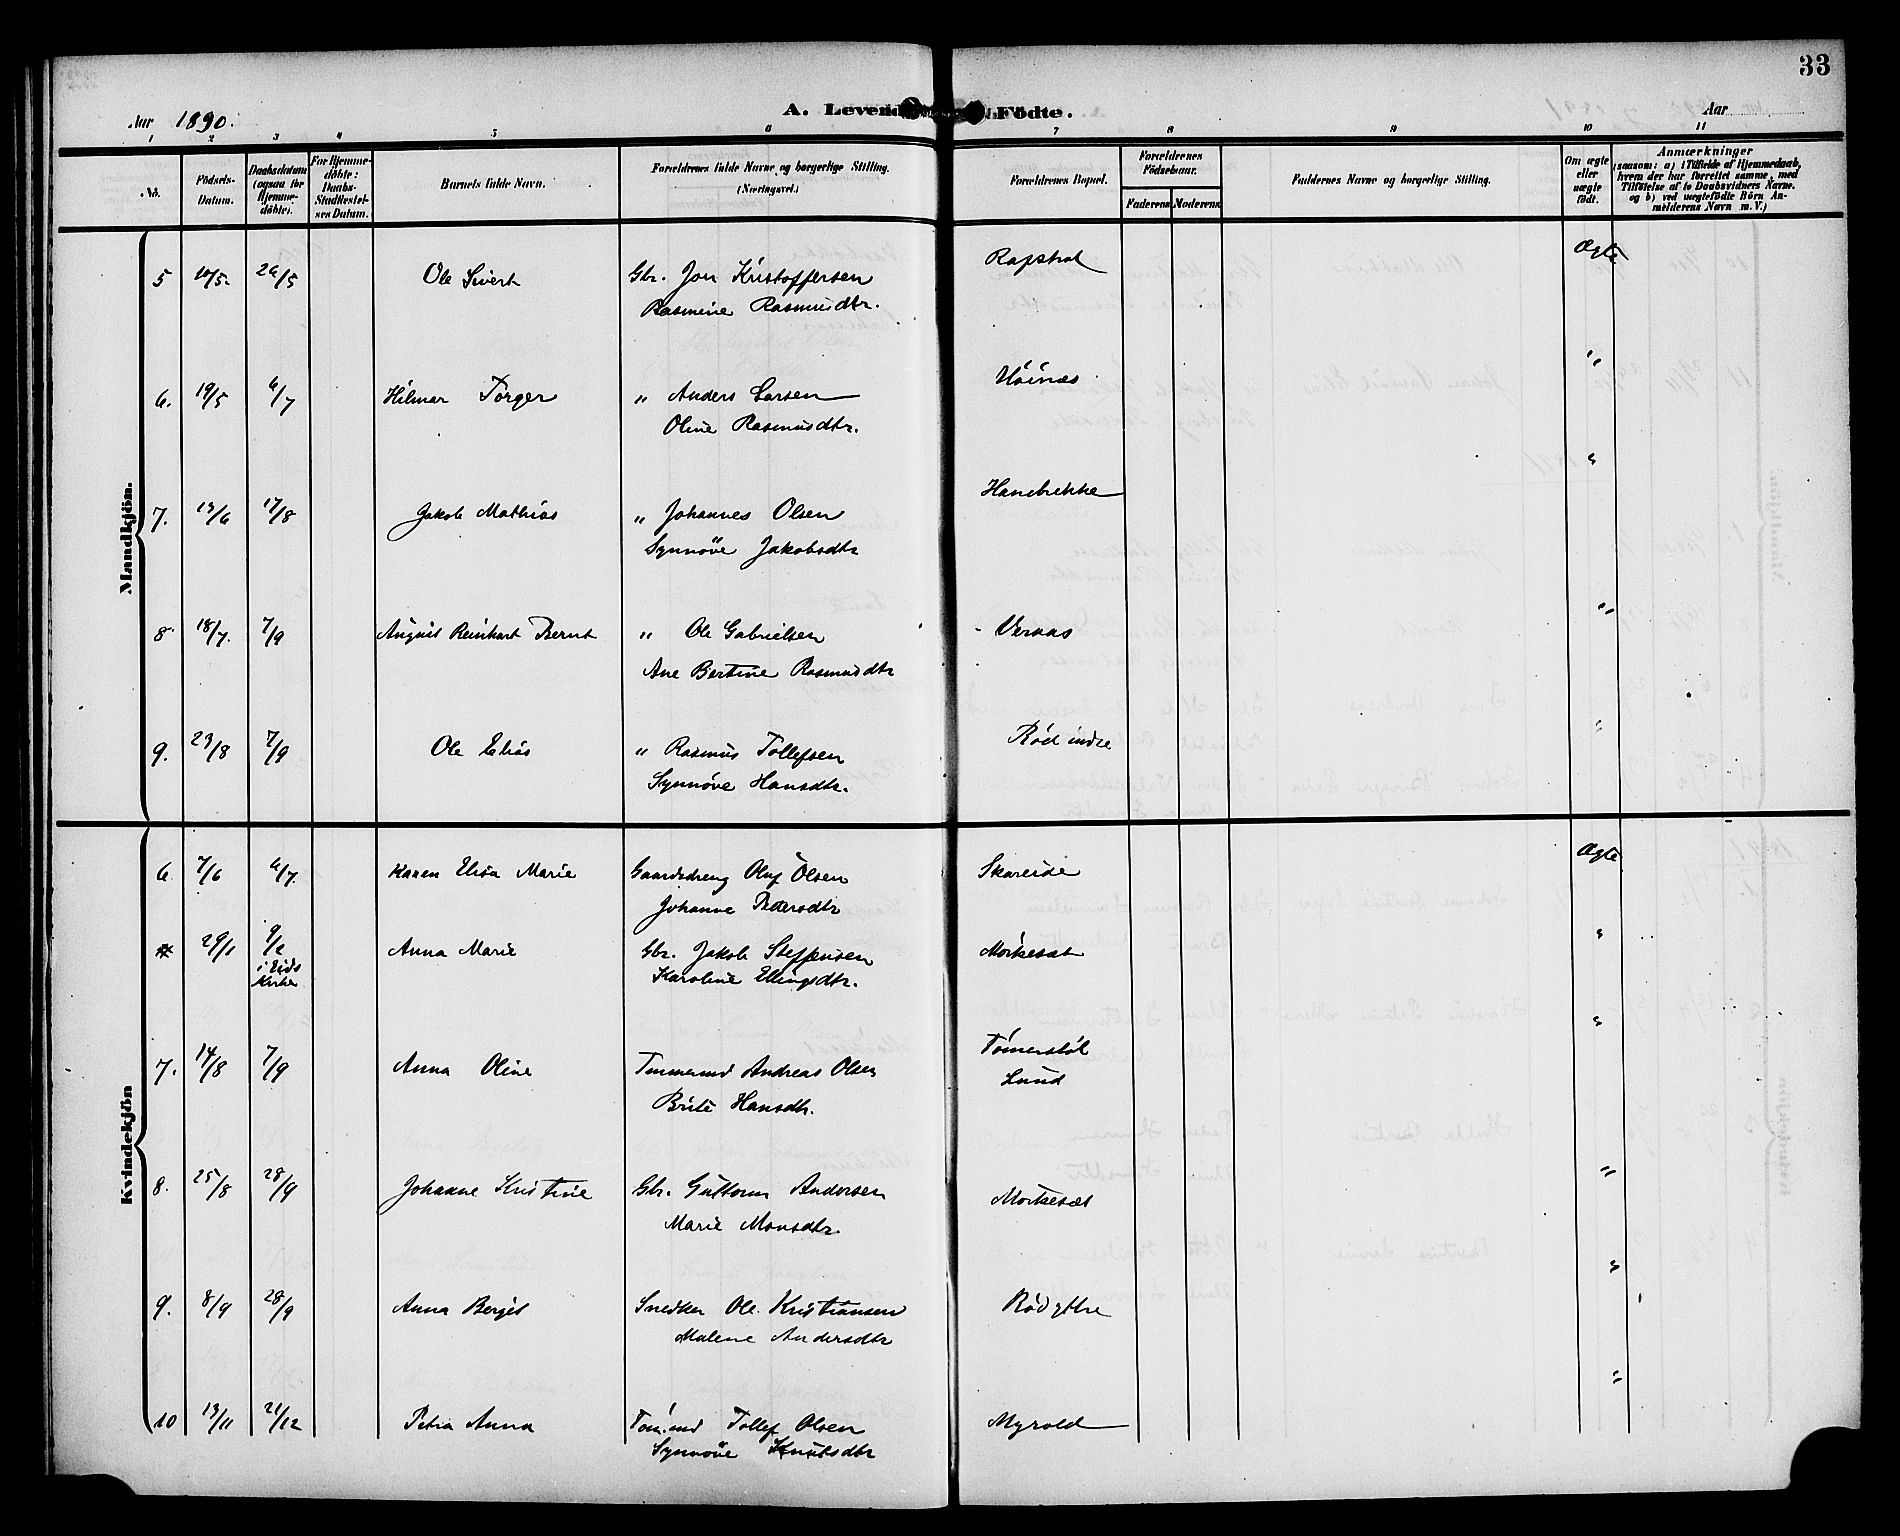 33
A. Levende Födte.
Aar 1890.
Aar
1 2 3 4 5 6 7 8 9 10 11
No.
Födsels-Datum.
Daabsdatum (ogsaa for Hjemme-döbte).
For Hjemme-döbte: Daabs-Stadfæstel-ses Datum.
Barnets fulde Navn.
Forældrenes fulde Navne og borgerlige Stilling. (Næringsvei.)
Forældrenes Bopæl.
Forældrenes Födselsaar.
Faderens Moderens
Faddernes Navne og borgerlige Stilling.
Om ægte eller uægte födt.
Anmærkninger
(saasom: a) i Tilfælde af Hjemmedaab, hvem der har forrettet samme, med Tilföielse af to Daabsvidners Navne. og b) ved uægtefödte Börn An-melderens Navn m. V.)
Mandkjön.
5 10/5. 26/5 Ole Sivert Gbr. Jon Kristoffersen Ægte
Rasmine Rasmusdtr.
6. 19/5 6/7 Hilmar Torger " Anders Larsen Höinæs "
Oline Rasmusdtr.
7. 13/6 17/8 Jakob Mathias " Johannes Olsen Hanebrekke "
Synnöve Jakobsdtr
8 18/7. 7/9 August Reinhart Bernt " Ole Gabrielsen "
Ane Bertine Rasmusdtr
9. 23/8 7/9 Ole Elias " Rasmus Tollefsen Röd indre "
Synnöve Hansdtr.
Kvindekjön
6 7/6 6/7. Karen Elisa Marie Gaardsdreng Oluf Olsen Skareide Ægte
Johanne Pedersdtr
29/1 9/2 Anna Marie Gbr. Jakob Steffensen Morkesæt "
i Eids Kirke Karoline Ellingsdtr.
7. 14/8 7/9 Anna Oline Tommermd Andreas Olsen Tömerstöl "
Lund
Brite Hansdtr.
8. 25/8 28/9 Johanne Kristine Gbr. Guttorm Andersen Morkesæt "
Marie Monsdtr.
9. 8/9 28/9 Anna Berget Snedker Ole Kristiansen Röd ytre "
Malene Andersdtr
10 13/11 21/12 Petra Anna Töm.md Tollef Olsen Myrold "
Synnöve Knutsdtr